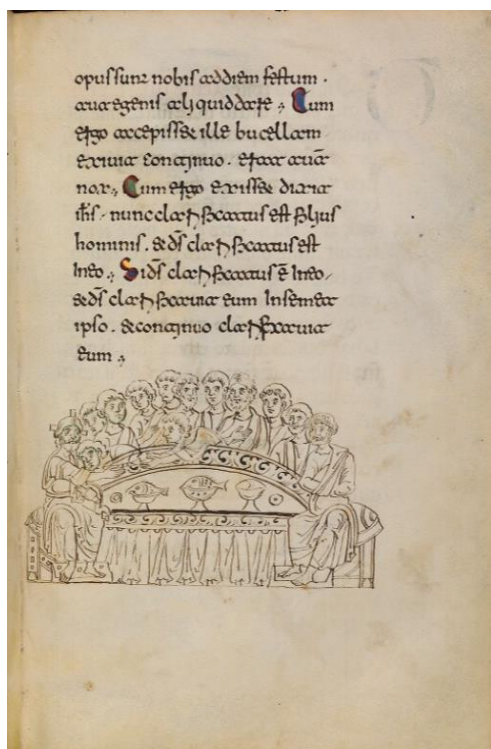 opus sunt nobis ad diem festum ·
aut egenis aliquid daret ; Cum
ergo accepisset ille bucellam
exivit continuo . erat aut̄
nox ; Cum ergo exisset dicit
ih̄s · nunc clarificatus est filius
hominis . & d̄s clarificatus est
in eo ; Si d̄s clarificatus ē in eo ·
& d̄s clarificavit eum in semet
ipso . & continuo clarificavit
eum ;